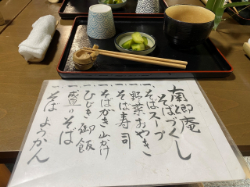 南郷庵
そばづくし
そばスープ
野菜おやき
そば寿司
そばがき山かけ
ひじき御飯
盛りそば
そばようかん